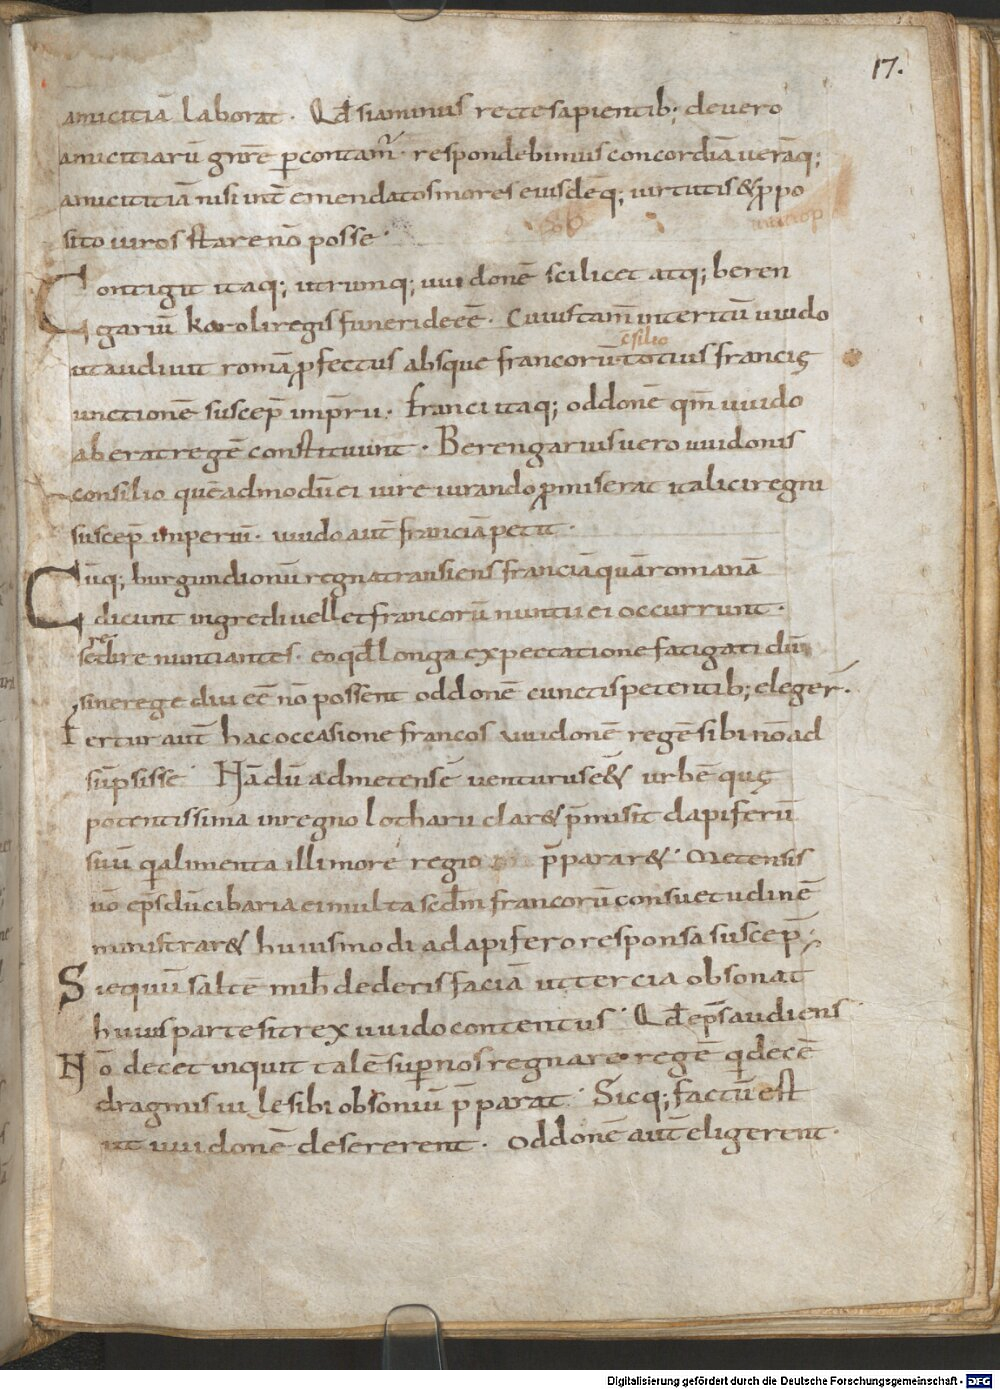 17.
amicitiā laborat. Qđ siaminus recte sapientib; de vero
amicitiarū gnr̄e p̱contam̄. respondebimus concordiā verāq;
amicitiā nisi int̄ emendatos mores eiusdēq; virtutis & ꝓpo
sito viros stare nō posse.
Contigit itaq; utrumq; uuidonē scilicet atq; beren
garium karoli regis funeri deēe. Cuius tam̄ interitū uuido
c̄silio
ut audiuit romā ꝓfectus absque francorū totius francię
unctionē suscep̄ imp̄riū. Franci itaq; oddonē qm̄ uuido
aberat regē constituunt. Berengarius vero uuidonis
consilio quēadmodū ei iure iurando ꝓmiserat italici regni
suscep̄ imperiū. uuido aut̄ franciā petit.
Cūq; burgundionū regna transiens franciā quā romanā
dicunt ingredi vellet francorū nuntii ei occurrunt.
se redire nuntiantes. eo qđ longa expectatione fatigati dū
sine rege diu ēe nō possent oddonē cunctis petentib; eleger̄.
Fertur aut̄ hac occasione francos uuidonē regē sibi nō ad
sūpsisse. Nā dū ad metensē venturus e&̄ urbē quę
potentissima in regno lotharii clar& p̄misit dapiferū
suū q̇ alimenta illi more regio p̄parar&. Metensis
v̄o ep̄s dū cibaria ei multa scđm francorū consuetudinē
ministrar& huiusmodi a dapifero responsa suscep̄.
Si equū saltē mihi dederis faciā ut tercia obsonat
huius parte sit rex uuido contentus. Qđ ep̄s audiens
Nō decet inquit talē sup̱ nos regnare regē q̇ decē
dragmis vile sibi obsoniū p̄parat. Sicq; factū est
ut uuidonē desererent. Oddonē aut̄ eligerent.
Digitalisierung gefördert durch die Deutsche Forschungsgemeinschaft - DFG